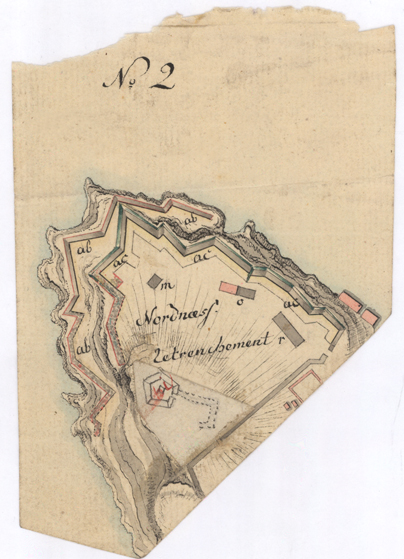 No. 2
ab
ab
ac
ac
m
o
ac
Nordnæss.
ab
Retrenchement
r